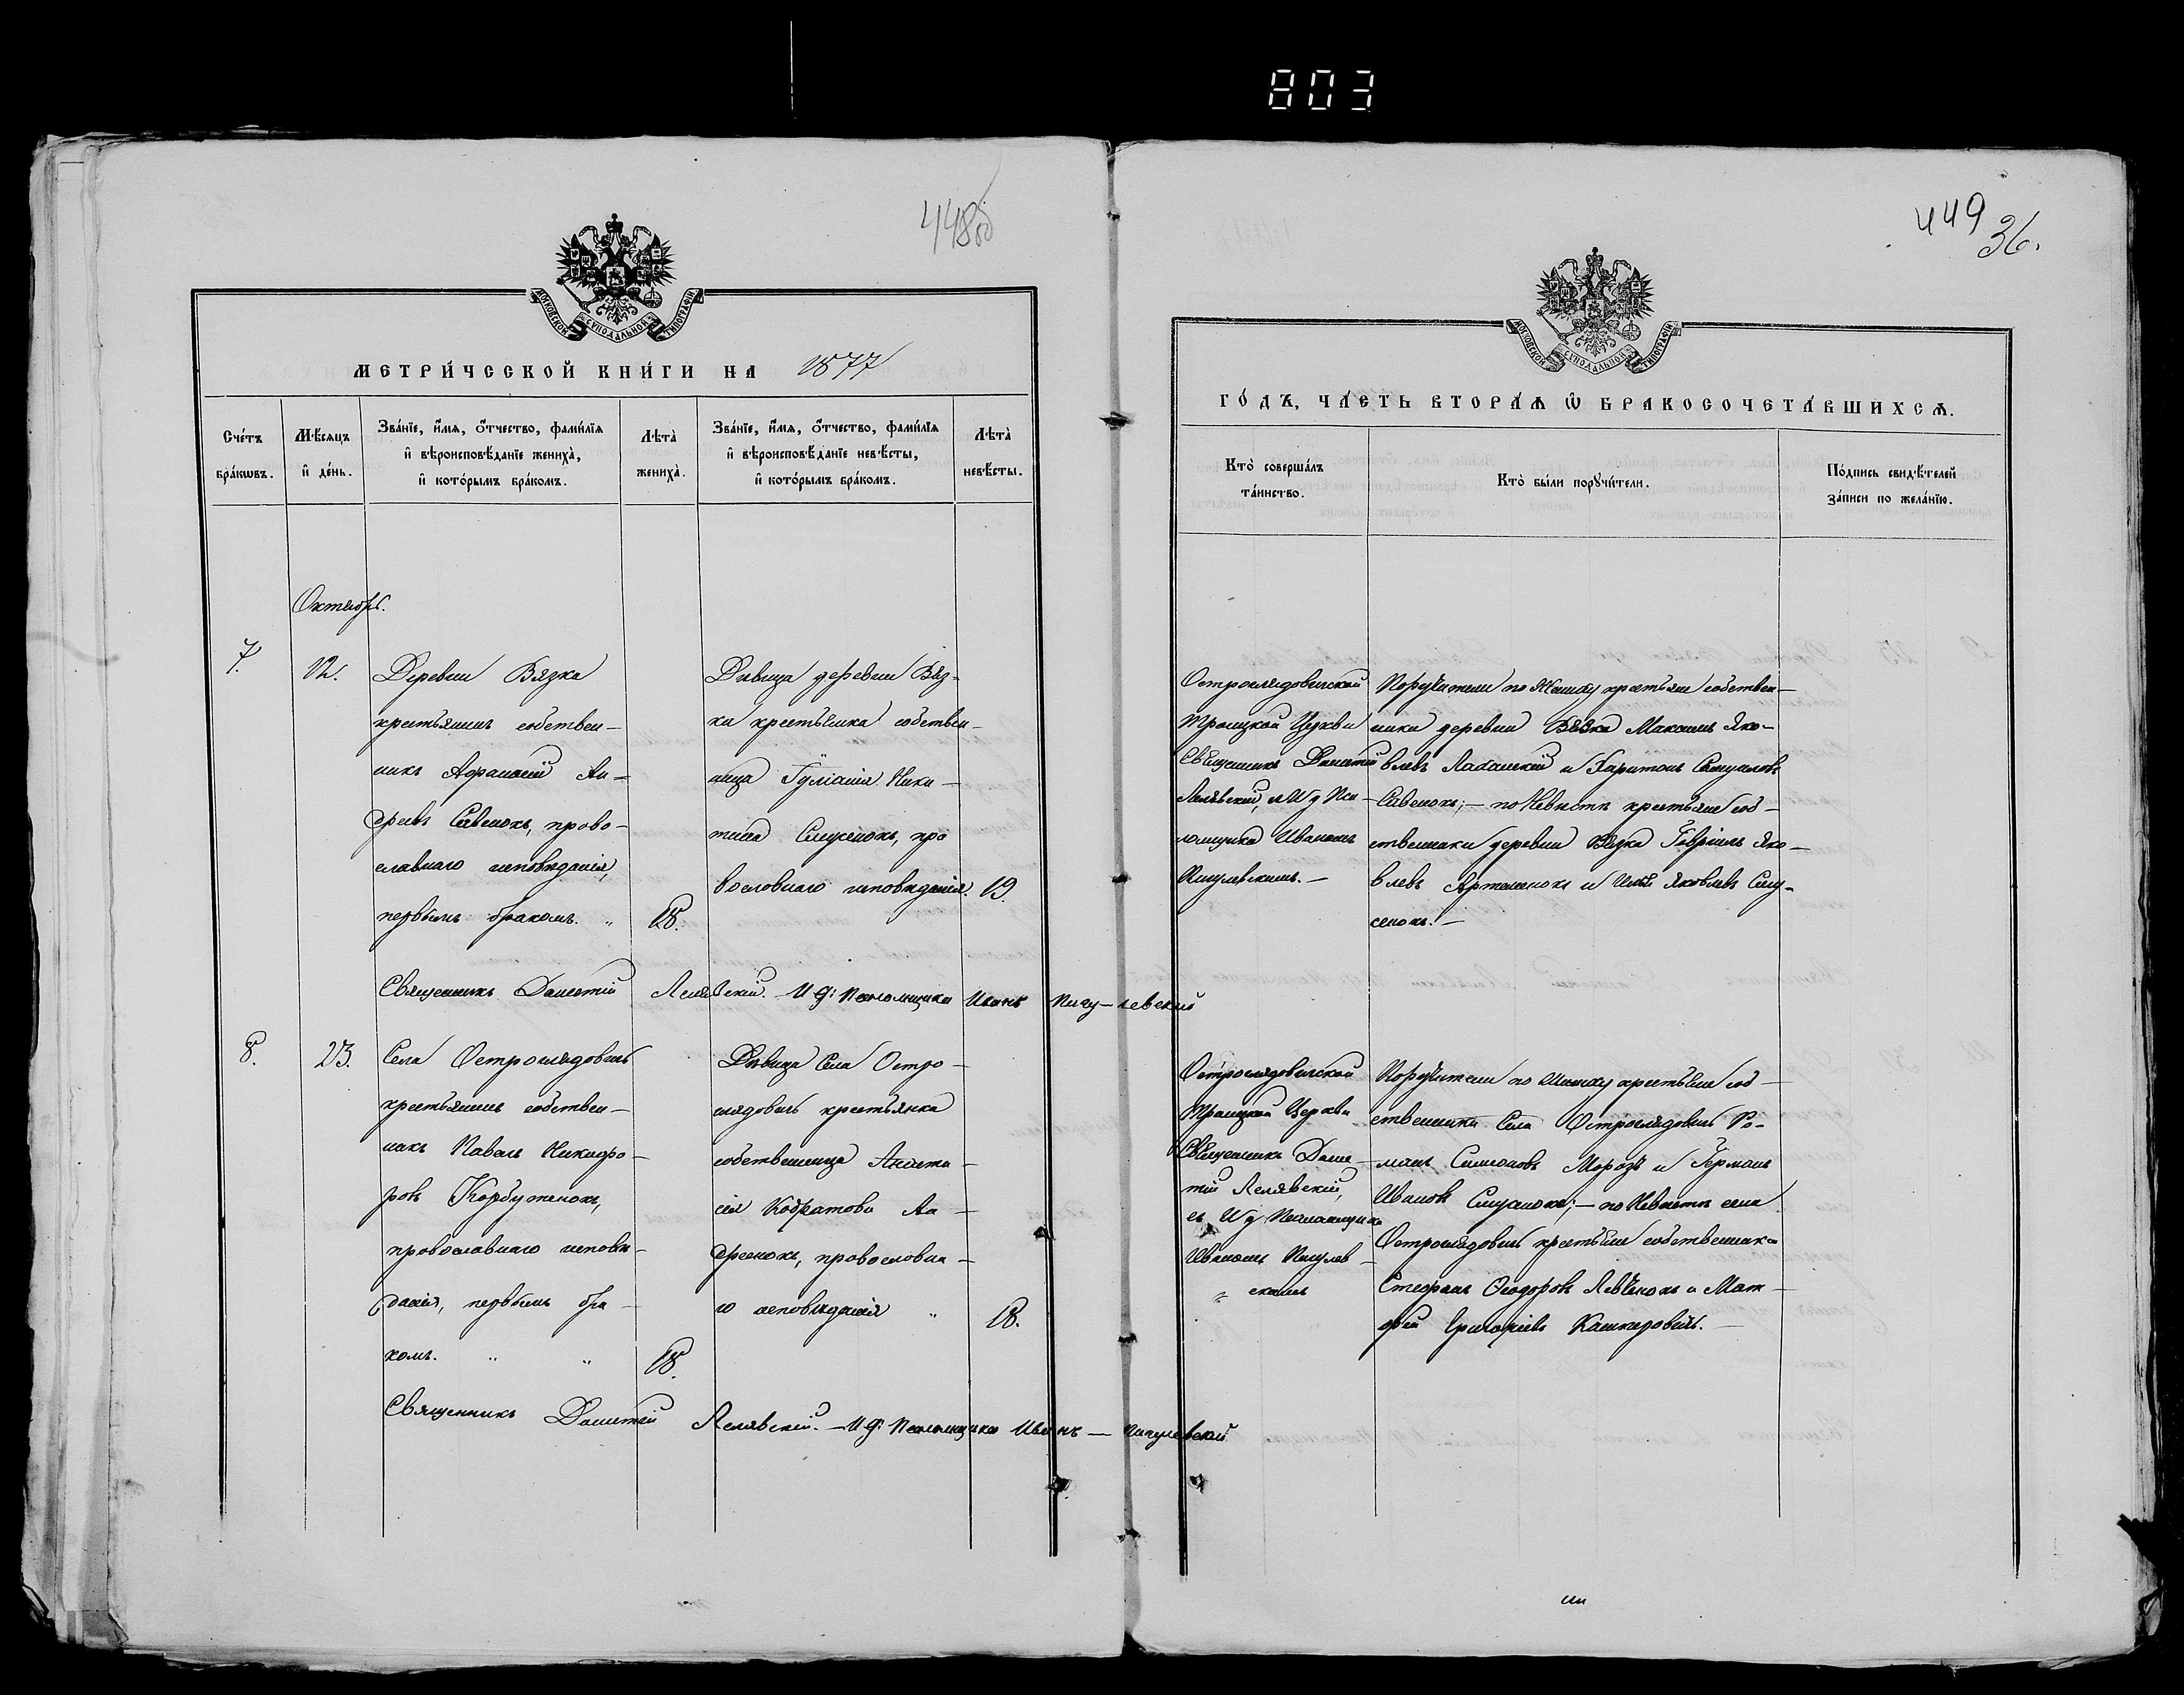 803
448об
МОСКОВСКОЙ СУНОДАЛЬНОЙ ТИПОГРАФІИ
МЕТРИ́ЧЕСКОЙ КНИ́ГИ НА 1877
Сче́тъ бра́кωвъ.
Мѣ́сяцъ и҆ де́нь.
Зва́нїе, и҆́мѧ, ѻ҆́тчество, фами́лїѧ и҆ вѣроисповѣ́данїе жениха̀, и҆ кото́рымъ бра́комъ.
Лѣта̀ жениха̀.
Зва́нїе, и҆́мѧ, ѻ҆́тчество, фами́лїѧ и҆ вѣроисповѣ́данїе невѣ́сты, и҆ кото́рымъ бра́комъ.
Лѣта̀ невѣ́сты.
Октябрь.
7.
12.
Деревни Вязка
крестьянинъ собствен-
никъ Афанасій Ан-
дреевъ Савенокъ, право-
славнаго исповѣданія,
первымъ бракомъ. „
18.
Дѣвица деревни Вяз-
ки крестьянка собствен-
ница Іуліанія Ники-
тина право-
вославнаго исповѣданія.
19.
Священникъ Дометій Лелявскій. – И д: Псаломщика Иванъ Пигулевскій
8.
23.
Села Остроглядовичъ
крестьянинъ собствен-
никъ Павелъ Никифо-
ровъ Корбутенокъ,
православнаго исповѣ-
данія, первымъ бра-
комъ. „ „
18.
Дѣвица Села Остро-
глядовичъ крестьянка
собственница Анаста-
сія Кодратова Ан-
дреенокъ, православна-
го исповѣданія „
18.
Священникъ Дометій Лелявскій. – И д: Псаломщика Иванъ – Пигулевскій
449
36.
МОСКОВСКОЙ СУНОДАЛЬНОЙ ТИПОГРАФІИ
ГО́ДЪ, ЧА́СТЬ ВТОРА́Ѧ Ѽ БРАКОСОЧЕТА́ВШИХСѦ.
Кто̀ соверша́лъ та́инство.
Кто̀ бы́ли порꙋчи́тели.
По́дпись свидѣ́телей за́писи по жела́нїю.
Остроглядовичской
Троицкой Церкви
Священникъ Дометій
Лелявскій, съ И д Пса-
ломщика Иваномъ
Пигулевскимъ. –
Поручители по Жениху крестьяне собствен-
ники деревни Вязка Максимъ Яко-
влевъ и Харитонъ Самуиловъ
Савенокъ; – по Невѣстѣ крестьяне соб-
ственники деревни Вязка Гавріилъ Яко-
влевъ Артеменокъ и Илья Яковлевъ
Остроглядовичской
Троицкой Церкви
Священникъ Доме-
тій Лелявскій,
съ И д Псаломщика
Иваномъ Пигулев-
„ скимъ
Поручители по Жениху крестьяне соб-
ственники Села Остроглядовичъ Ро-
манъ Симеоновъ Морозъ и Германъ
Ивановъ – по Невѣстѣ села
Остроглядовичъ крестьяне собственники
Стефанъ Ѳеодоровъ Левченокъ и Мат-
фей Григоріевъ